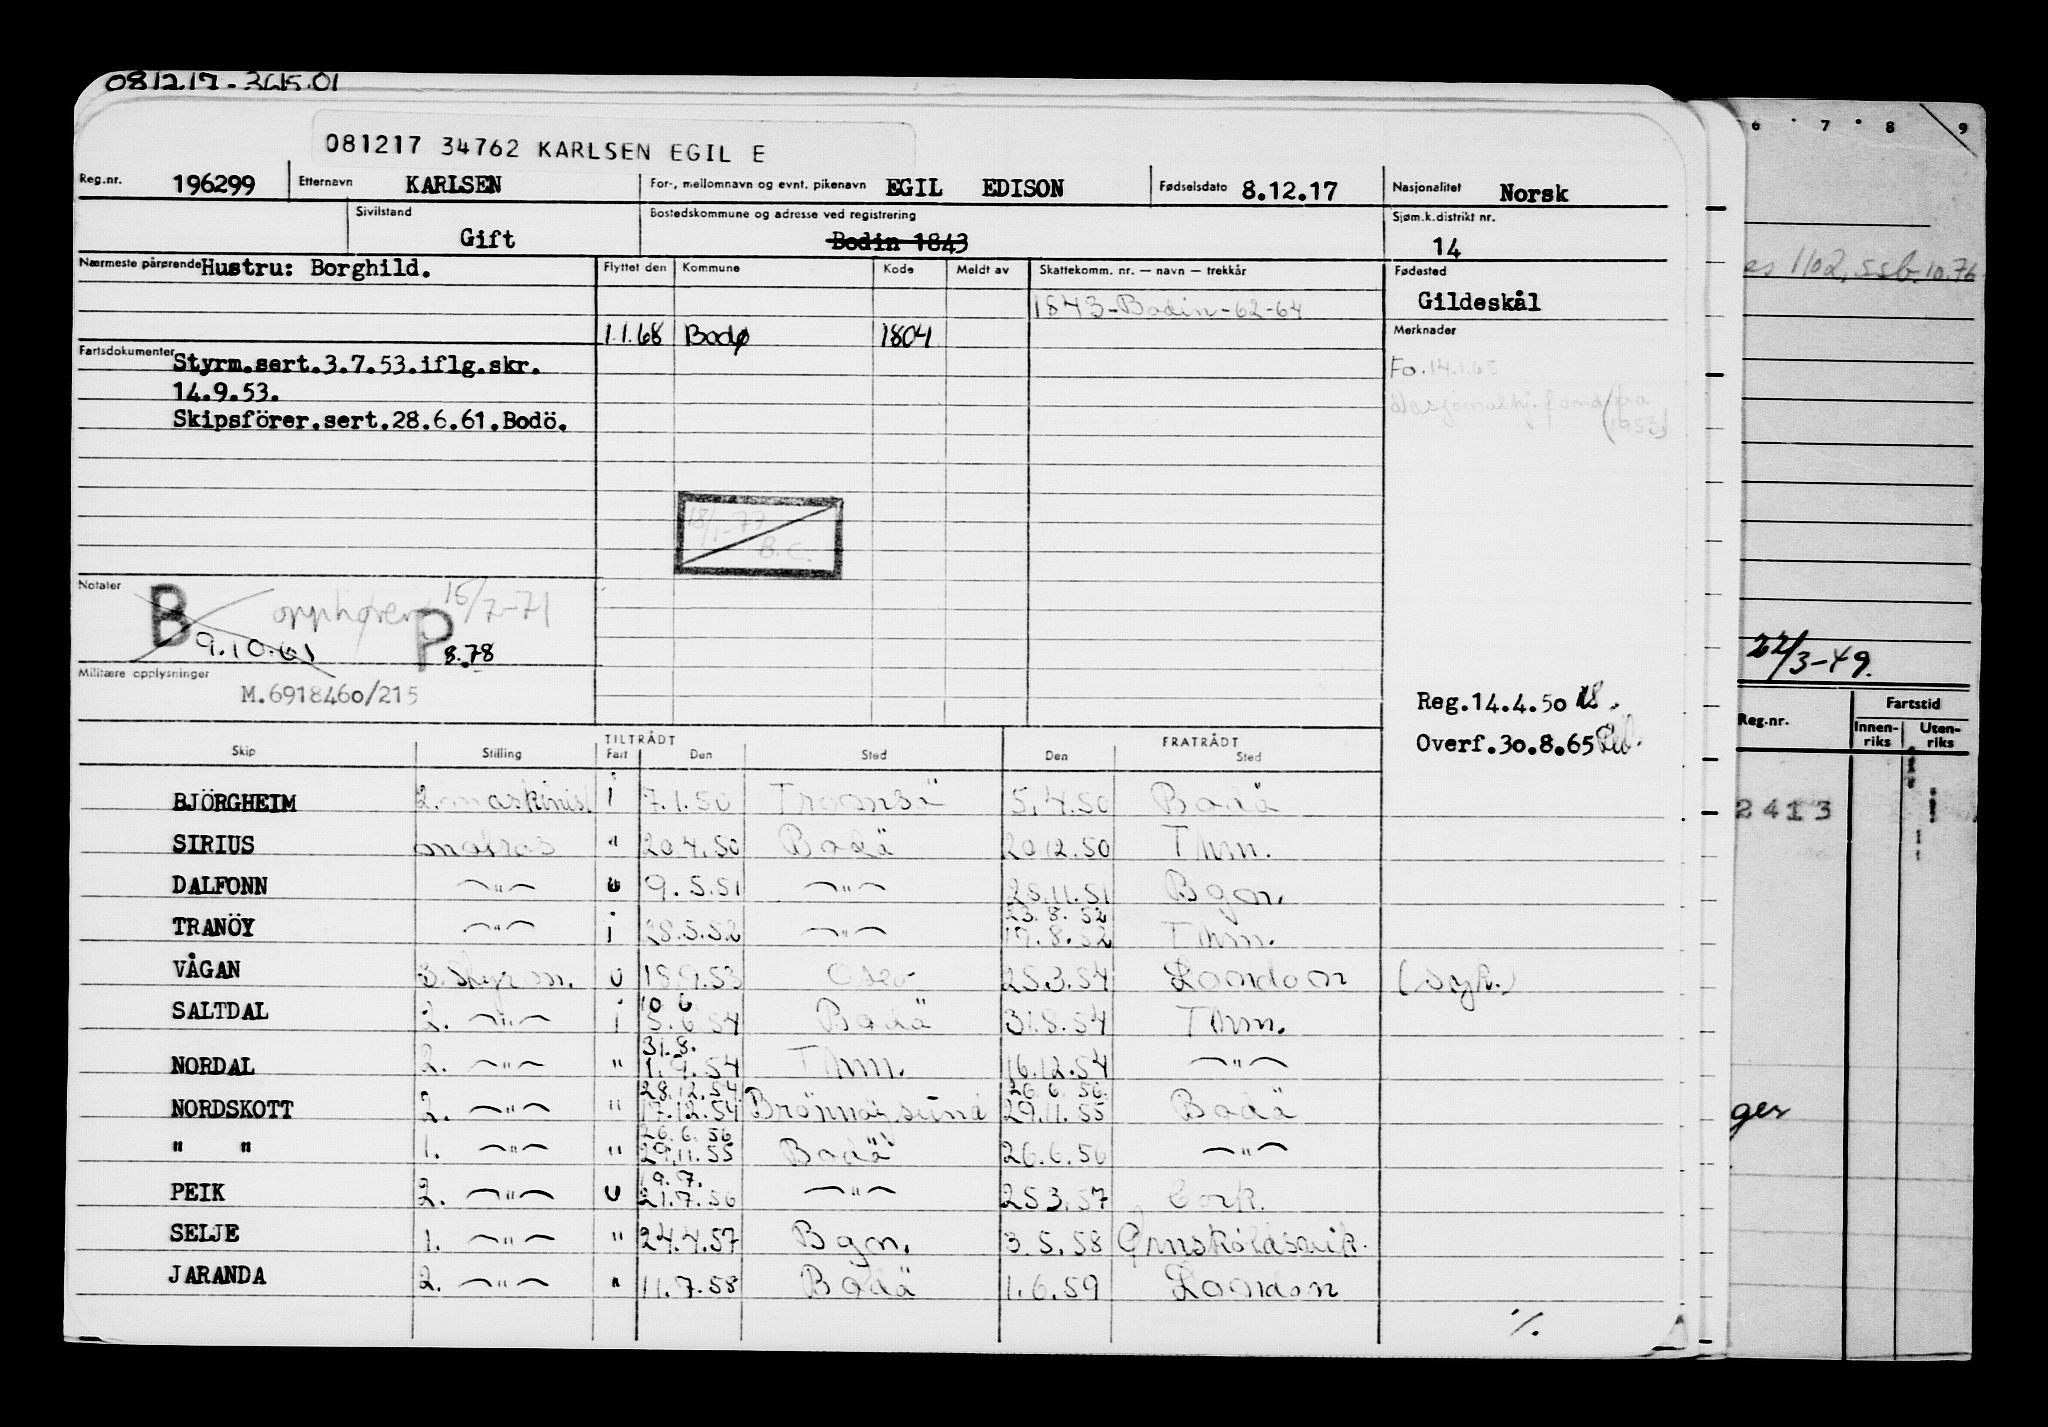 081217 - 3615.01
081217 34762 KARLSEN EGIL E
Reg.nr. 196299 Etternavn KARLSEN For-, mellomnavn og evnt. pikenavn EGIL EDISON Fødselsdato 8.12.17 Nasjonalitet Norsk
Sivilstand Gift Bostedskommune og adresse ved registrering Bodin 1843 Sjøm.k.distrikt nr. 14
Nærmeste pårørende Hustru: Borghild. Flyttet den Kommune Kode Meldt av Skattekomm. nr. — navn — trekkår Fødested
1843-Bodin-62-64 Gildeskål
1.1.68 Bodø 1804 Merknader
Fartsdokumenter Styrm.sert.3.7.53.iflg.skr. Fo.14.1.65
14.9.53.
Skipsförer.sert.28.6.61.Bodö. (fra 1953)
18/1-77
B.C.
Notater B opphører 15/7-71
9.10.61 P 8.78
Militære opplysninger
M.6918460/215
Reg.14.4.50
Overf.30.8.65
TILTRÅDT FRATRÅDT
Skip Stilling Fart Den Sted Den Sted
BJÖRGHEIM 2.maskinist i 7.1.50 Tromsö 5.4.50 Bodö
SIRIUS matros " 20.4.50 Bodö 20.12.50 Thm.
DALFONN —"— u 9.5.51 —"— 25.11.51 Bgn.
23.8.52
TRANÖY —"— i 28.5.52 —"— 17.8.52 Thm.
VÅGAN 3.styrm. u 18.9.53 Oslo 25.3.54 London (syk.)
10 6
SALTDAL 2. —"— i 5.6.54 Bodö 31.8.54 Thm.
31.8.
NORDAL 2. —"— " 1.9.54 Thm. 16.12.54 —"—
28.12.54 26.6.56.
NORDSKOTT 2. —"— " 17.12.54 Brönnöysund 29.11.55 Bodö
26.6.56
" " 1. —"— " 29.11.55 Bodö 26.6.56 —"—
19.7.
PEIK 2. —"— u 21.7.56 —"— 25.3.57 Cork.
SELJE 1. —"— " 24.4.57 Bgn. 3.5.58 Örnsköldsvik.
JARANDA 2. —"— " 11.7.58 Bodö 1.6.59 London
./.
6 7 8 9
1102, ssb. 10.76
22/3-49.
Reg.nr. Fartstid
Innen-riks Uten-riks
2413
ger